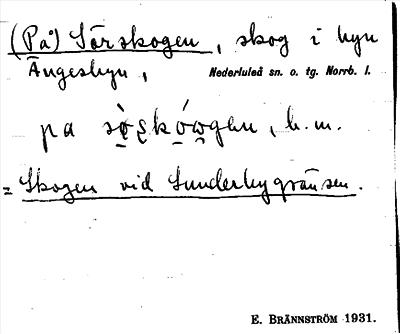 (På) Sörskogen, skog i byn
Ängesbyn,
Nederluleå sn. o. tg. Norrb. l.
pa
b. m.
= Skogen vid Sunderbygränsen.
E. BRÄNNSTRÖM 1931.